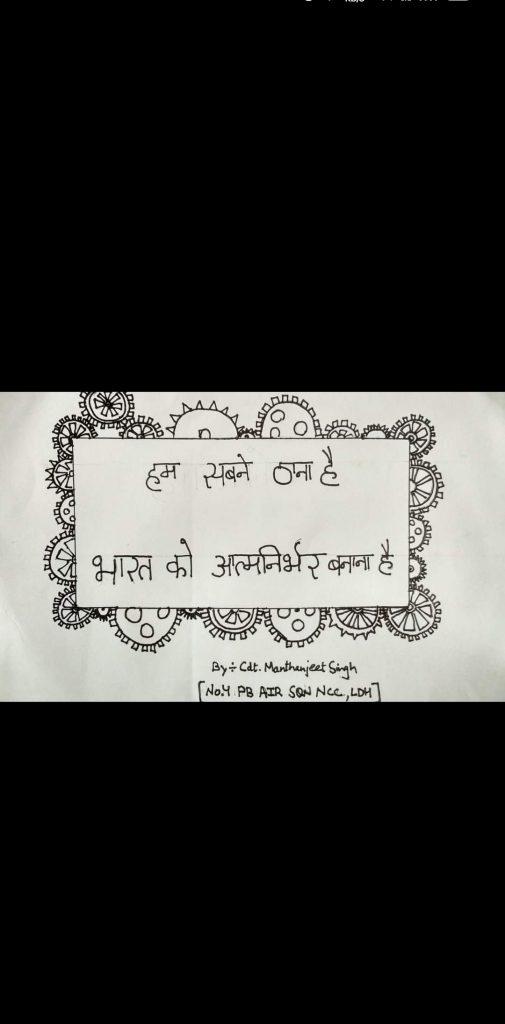 हम सबने ठाना है
भारत को आत्मनिर्भर बनाना है
By÷ Cdt. Manthanjeet Singh
[No.4 PB AIR SQN NCC, LDH]